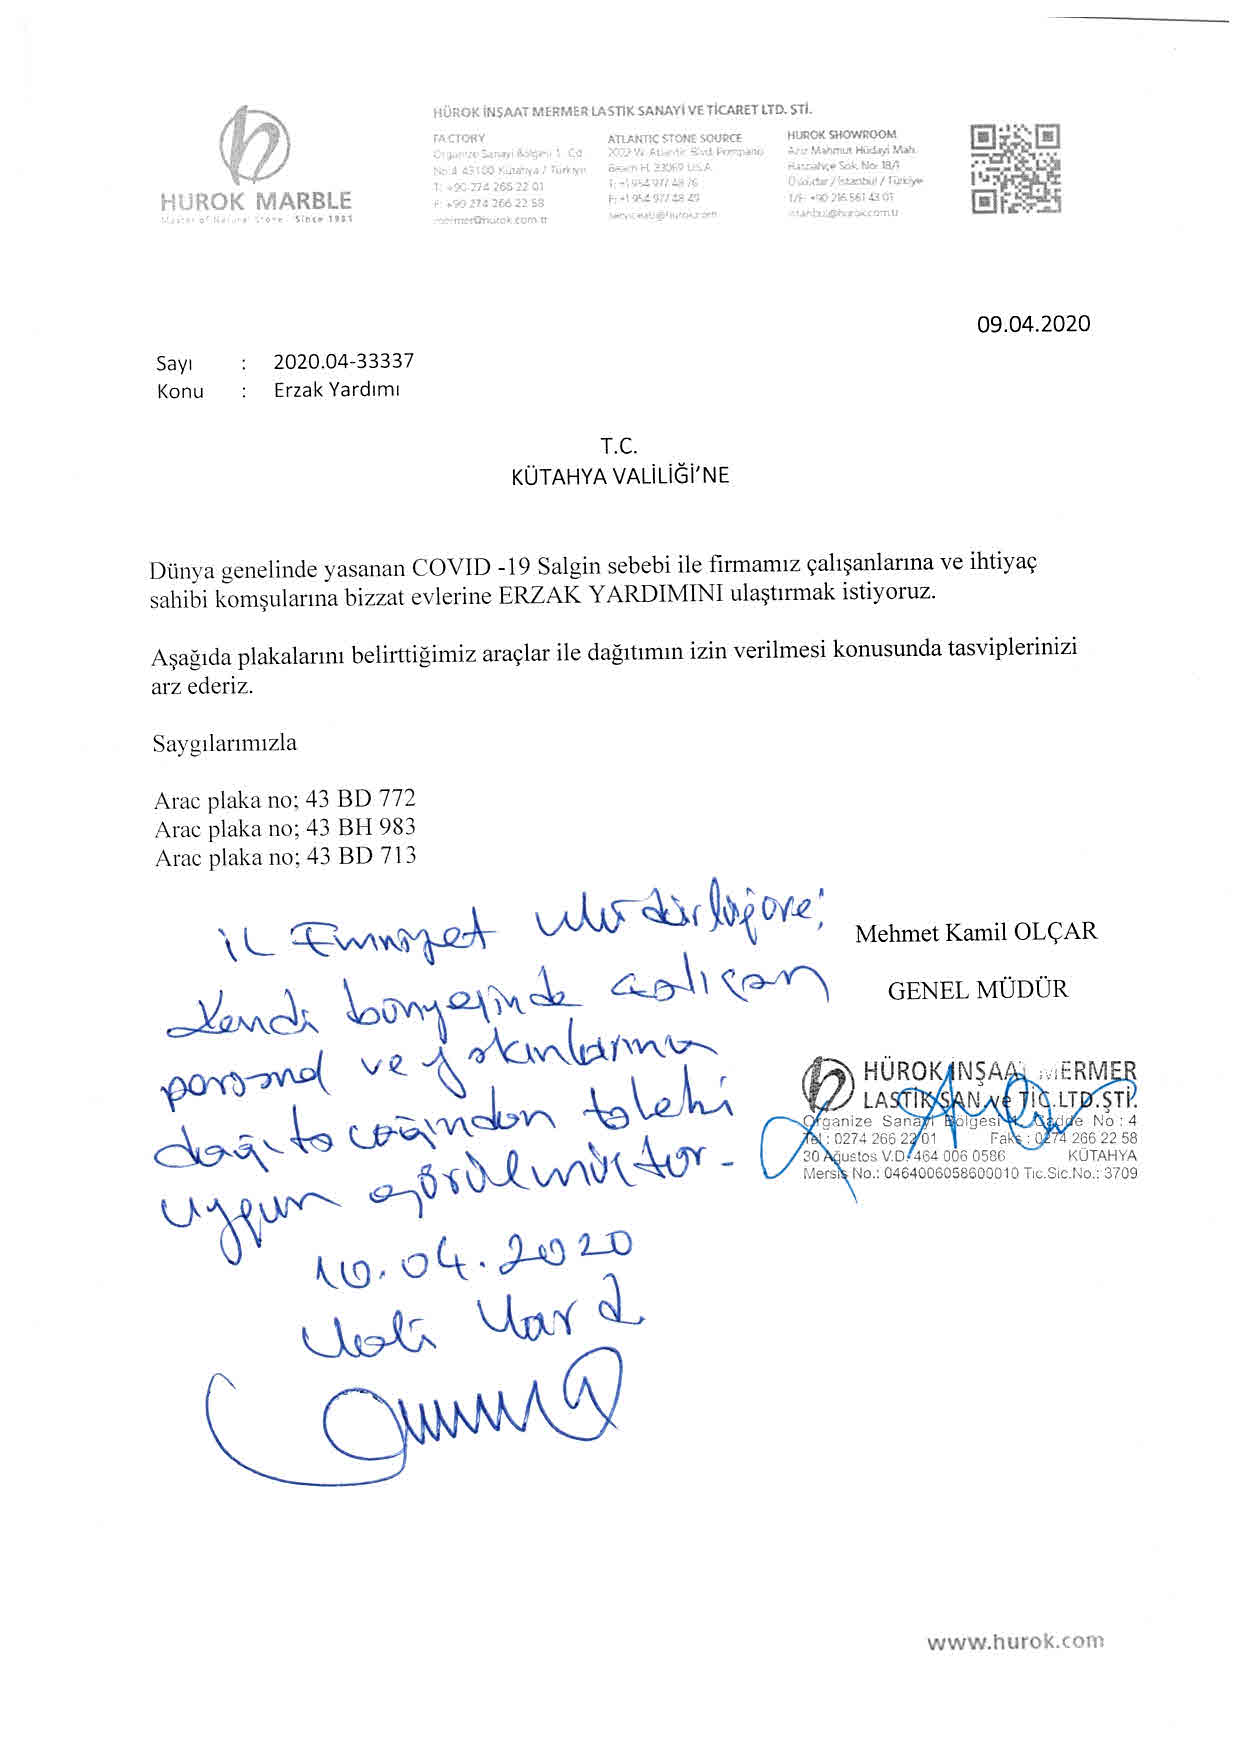 HUROK MARBLE
Master of Natural Stone - Since 1981
HÜROK İNŞAAT MERMER LASTİK SANAYİ VE TİCARET LTD. ŞTİ.
FACTORY
Organize Sanayi Bölgesi 1. Cd.
No:4 43100 Kütahya / Türkiye
T: +90 274 266 22 01
F: +90 274 266 22 58
mermer@hurok.com.tr
ATLANTIC STONE SOURCE
2022 W. Atlantic Blvd. Pompano
Beach Fl. 33069 U.S.A.
T: +1 954 977 48 76
F: +1 954 977 48 49
HUROK SHOWROOM
Aziz Mahmut Hüdayi Mah.
Sok. No: 18/1
Üsküdar / İstanbul / Türkiye
T/F: +90 216 561 43 01
istanbul@hurok.com.tr
09.04.2020
Sayı : 2020.04-33337
Konu : Erzak Yardımı
T.C.
KÜTAHYA VALİLİĞİ'NE
Dünya genelinde yasanan COVID -19 Salgin sebebi ile firmamız çalışanlarına ve ihtiyaç
sahibi komşularına bizzat evlerine ERZAK YARDIMINI ulaştırmak istiyoruz.
Aşağıda plakalarını belirttiğimiz araçlar ile dağıtımın izin verilmesi konusunda tasviplerinizi
arz ederiz.
Saygılarımızla
Arac plaka no; 43 BD 772
Arac plaka no; 43 BH 983
Arac plaka no; 43 BD 713
İl Emniyet Müdürlüğüne;
Kendi bünyesinde çalışan
personel ve yakınlarına
dağıtacağından talebi
uygun görülmüştür.
10.04.2020
Vali
Mehmet Kamil OLÇAR
GENEL MÜDÜR
HÜROK İNŞAAT MERMER
LASTİK SAN.ve TİC.LTD.ŞTİ.
Organize Sanayi Bölgesi 1. Cadde No : 4
Tel : 0274 266 22 01 Faks : 0274 266 22 58
30 Ağustos V.D. 464 006 0586 KÜTAHYA
Mersis No.: 0464006058600010 Tic.Sic.No.: 3709
www.hurok.com